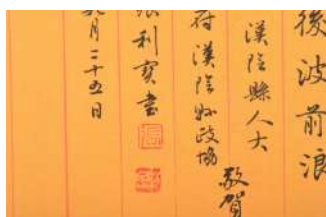 後波前浪
漢陰縣人大
府漢陰縣政協
敬賀
利寶書
月二十五日